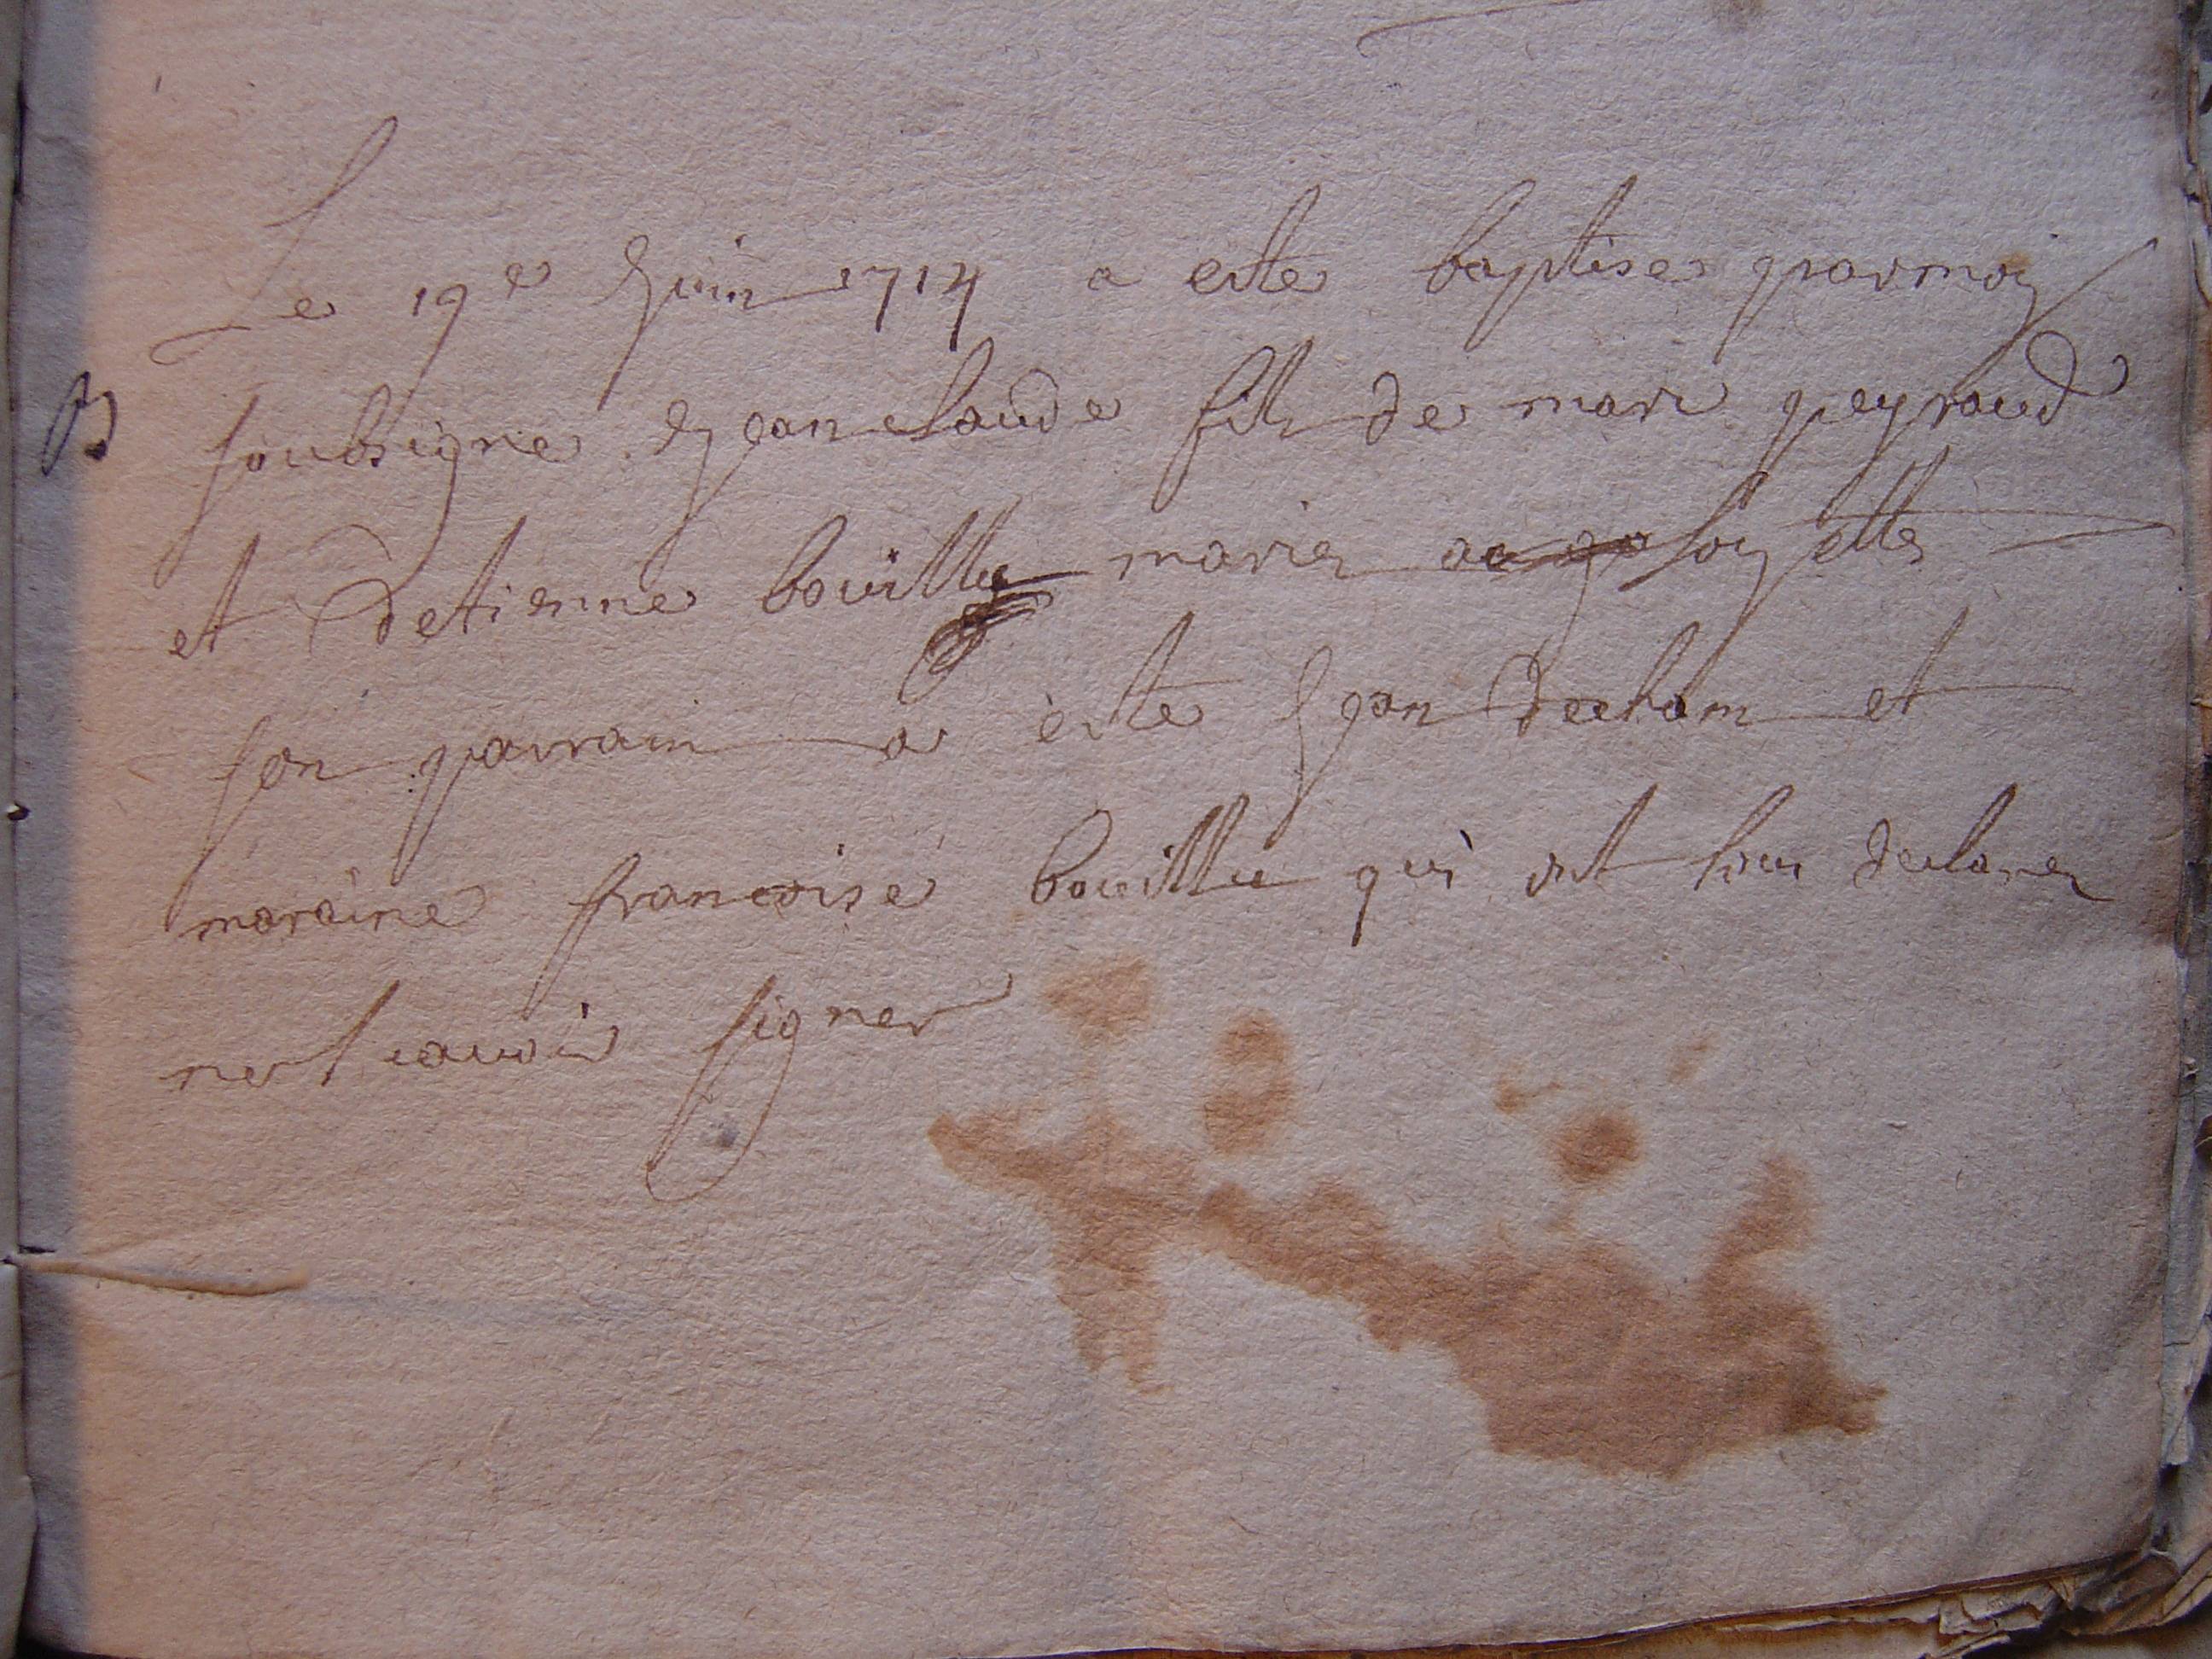 Le 19e Juin 1714 a esté baptisé par moy
B soubsigne Jean claude fils de marc peyraud
et detienne bouillu mariez a soyette
son parrain a esté Jean decham et
maraine francoise bouillu qui ont tous declarez
ne scavoir signer